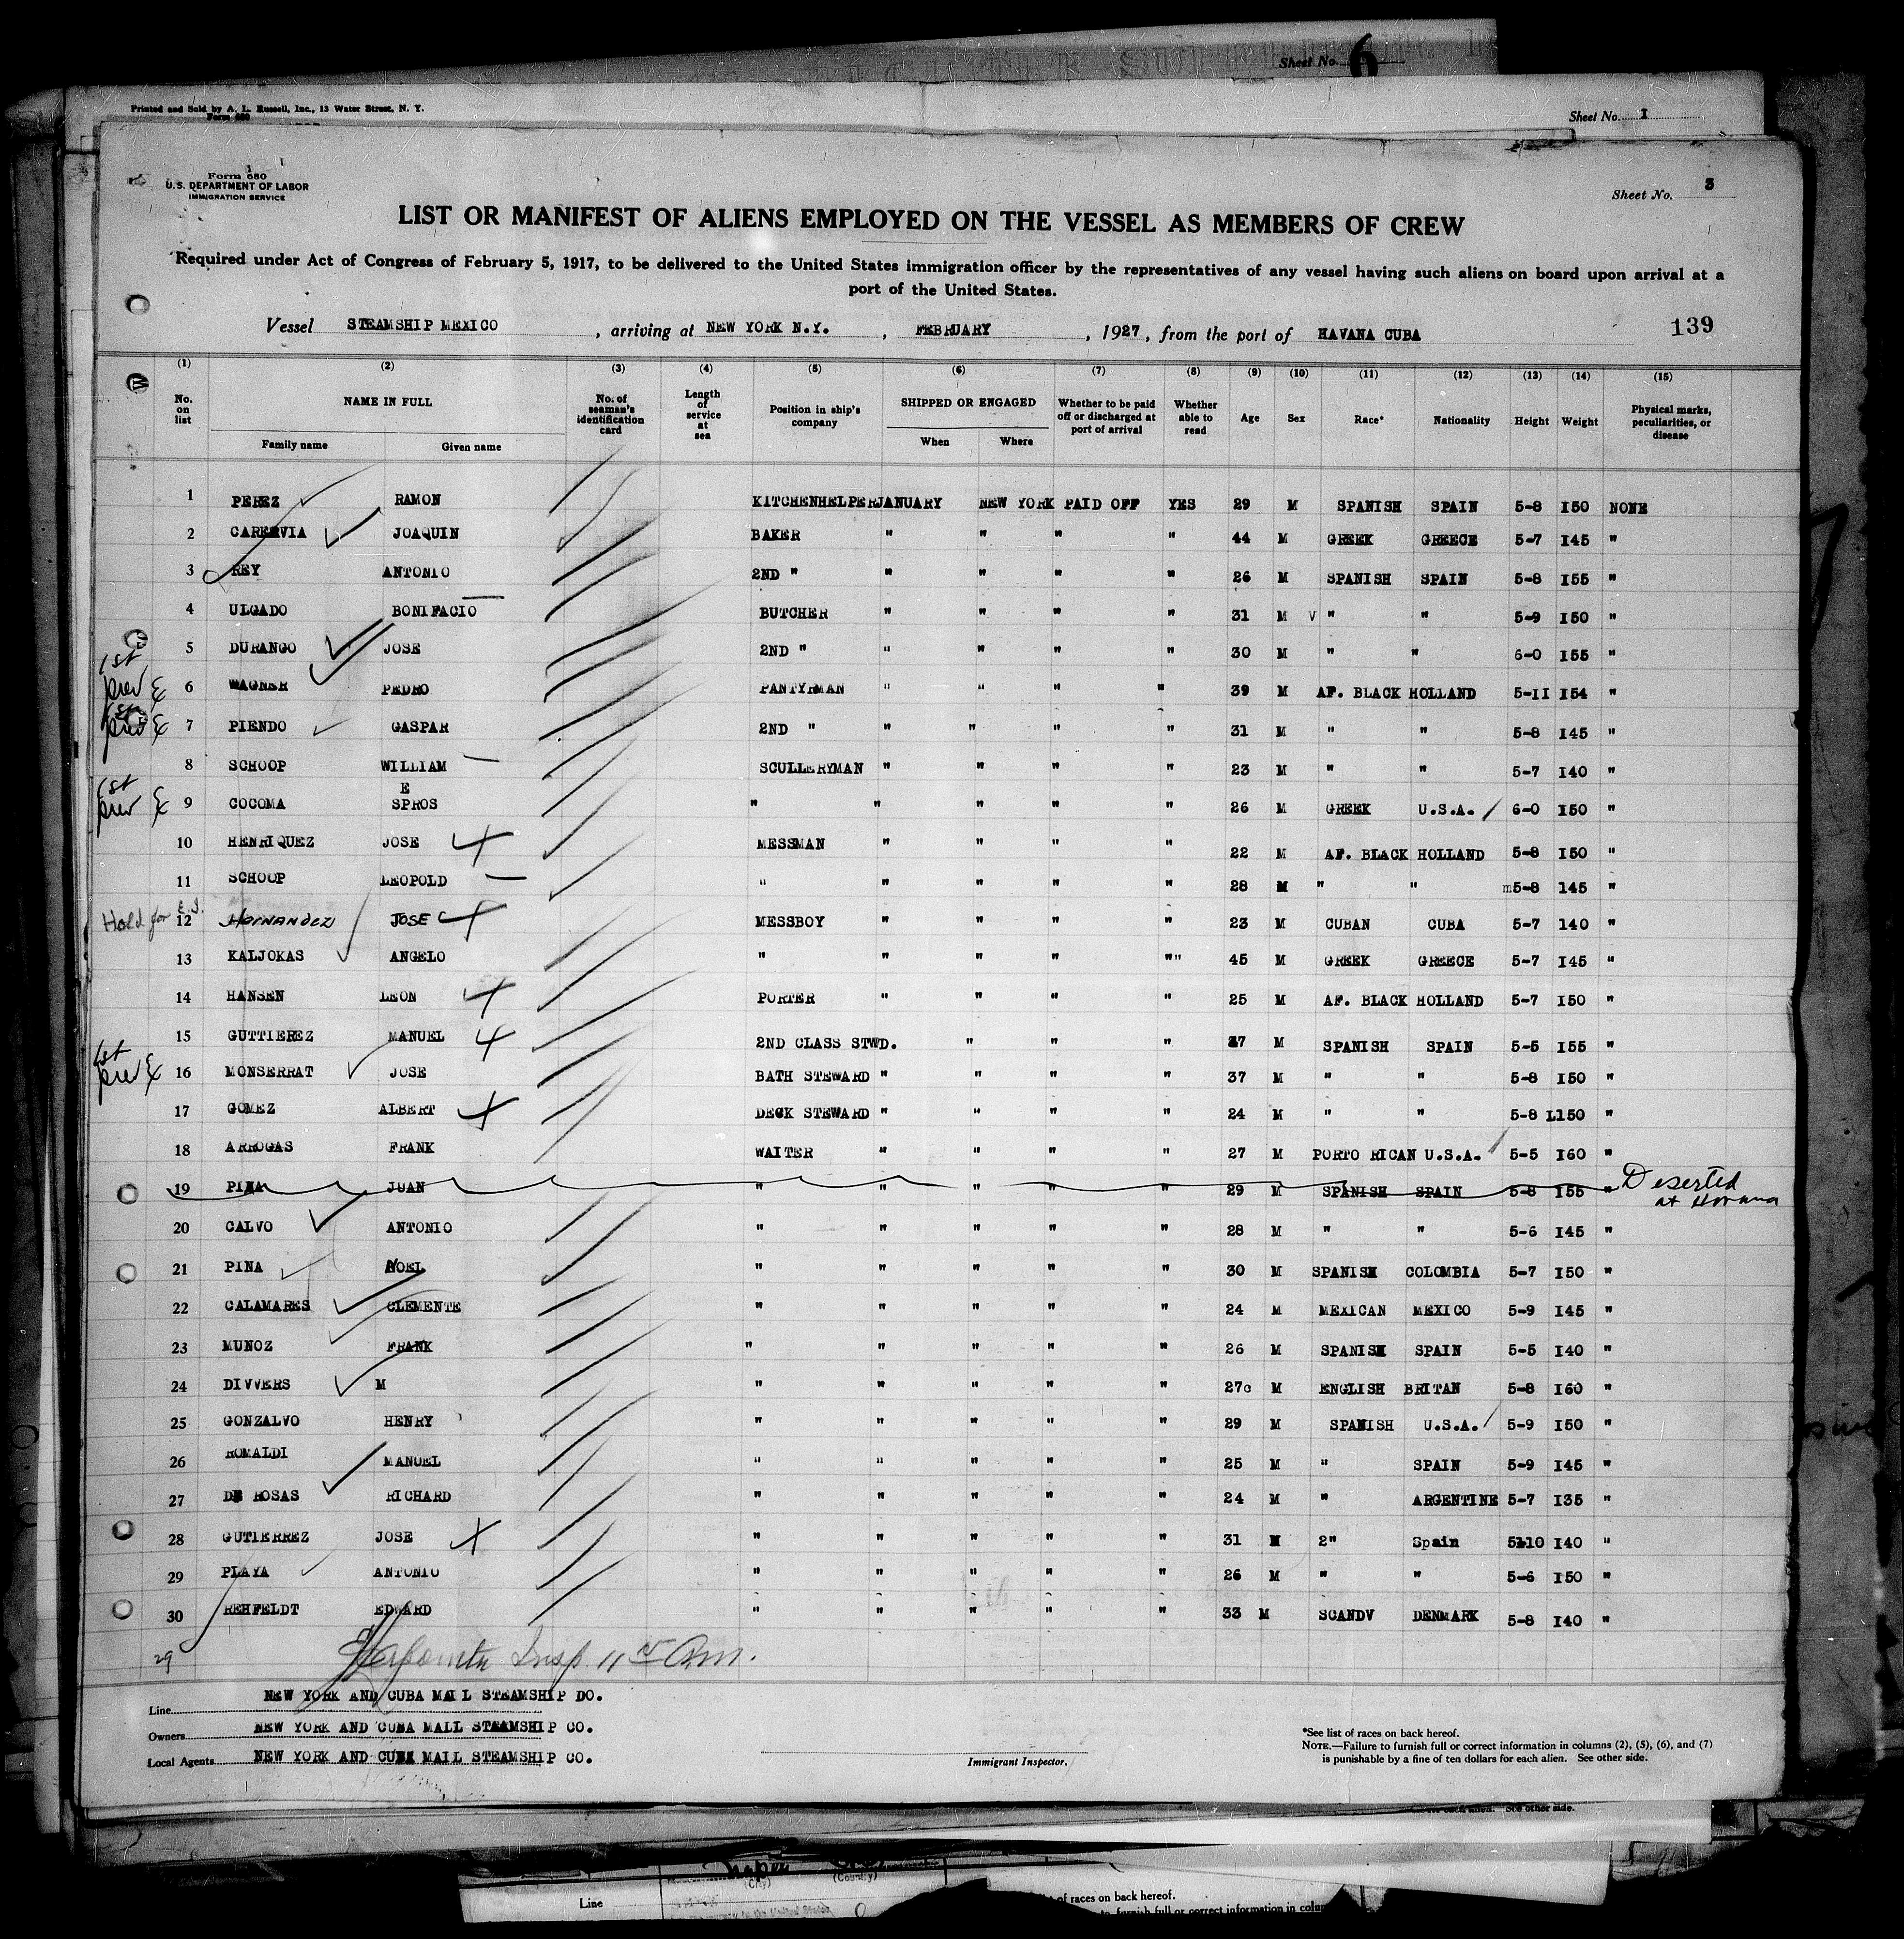 Sheet No. 6
Printed and Sold by A. L. Russell, Inc., 13 Water Street, N. Y.
Form 680
Sheet No. I
Form 680
U.S. DEPARTMENT OF LABOR
IMMIGRATION SERVICE
Sheet No. 3
LIST OR MANIFEST OF ALIENS EMPLOYED ON THE VESSEL AS MEMBERS OF CREW
Required under Act of Congress of February 5, 1917, to be delivered to the United States immigration officer by the representatives of any vessel having such aliens on board upon arrival at a
port of the United States.
Vessel STEAMSHIP MEXICO, arriving at NEW YORK N.Y., FEBRUARY, 1927, from the port of HAVANA CUBA
139
(1) (2) (3) (4) (5) (6) (7) (8) (9) (10) (11) (12) (13) (14) (15)
No. on list NAME IN FULL Family name Given name No. of seaman's identification card Length of service at sea Position in ship's company SHIPPED OR ENGAGED When Where Whether to be paid off or discharged at port of arrival Whether able to read Age Sex Race* Nationality Height Weight Physical marks, peculiarities, or disease
1 PEREZ RAMON KITCHENHELPER JANUARY NEW YORK PAID OFF YES 29 M SPANISH SPAIN 5-8 I50 NONE
2 CARERVIA JOAQUIN BAKER " " " " 44 M GREEK GREECE 5-7 I45 "
3 REY ANTONIO 2ND " " " " " 26 M SPANISH SPAIN 5-8 I55 "
4 ULGADO BONIFACIO BUTCHER " " " " 31 M V " " 5-9 I50 "
5 DURANGO JOSE 2ND " " " " " 30 M " " 6-0 I55 "
1st prev 6 WAGNER PEDRO PANTYRMAN " " " " 39 M AF. BLACK HOLLAND 5-II I54 "
1st prev 7 PIENDO GASPAR 2ND " " " " " 31 M " " 5-8 I45 "
8 SCHOOP WILLIAM SCULLERYMAN " " " " 23 M " " 5-7 I40 "
1st prev 9 COCOMA SPROS E " " " " " 26 M GREEK U.S.A. 6-0 I50 "
10 HENRIQUEZ JOSE MESSMAN " " " " 22 M AF. BLACK HOLLAND 5-8 I50 "
11 SCHOOP LEOPOLD " " " " 28 M " " m5-8 145 "
Hold for 12 Hernandez JOSE MESSBOY " " " " 23 M CUBAN CUBA 5-7 140 "
13 KALJOKAS ANGELO " " " " "" 45 M GREEK GREECE 5-7 I45 "
14 HANSEN LEON PORTER " " " " 25 M AF. BLACK HOLLAND 5-7 I50 "
15 GUTTIEREZ MANUEL 2ND CLASS STWD. " " " 37 M SPANISH SPAIN 5-5 I55 "
1st prev 16 MONSERRAT JOSE BATH STEWARD " " " " 37 M " " 5-8 I50 "
17 GOMEZ ALBERT DECK STEWARD " " " " 24 M " " 5-8 L150 "
18 ARROGAS FRANK WAITER " " " " 27 M PORTO RICAN U.S.A. 5-5 I60 "
19 PINA JUAN " " " " " 29 M SPANISH SPAIN 5-8 I55 " Deserted at Havana
20 CALVO ANTONIO " " " " " 28 M " " 5-6 I45 "
21 PINA NOEL " " " " " 30 M SPANISH COLOMBIA 5-7 I50 "
22 CALAMARES CLEMENTE " " " " " 24 M MEXICAN MEXICO 5-9 I45 "
23 MUNOZ FRANK " " " " " 26 M SPANISH SPAIN 5-5 I40 "
24 DIVVERS M " " " " " 27c M ENGLISH BRITAN 5-8 I60 "
25 GONZALVO HENRY " " " " " 29 M SPANISH U.S.A. 5-9 I50 "
26 ROMALDI MANUEL " " " " " 25 M " SPAIN 5-9 I45 "
27 DE ROSAS RICHARD " " " " " 24 M " ARGENTINE 5-7 I35 "
28 GUTIERREZ JOSE " " " " " 31 M 2" Spain 5-10 I40 "
29 PLAYA ANTONIO " " " " " 26 M " " 5-6 I50 "
30 REHFELDT EDWARD " " " " " 33 M SCANDV DENMARK 5-8 I40 "
29 Insp.
Line NEW YORK AND CUBA MAIL STEAMSHIP DO.
Owners NEW YORK AND CUBA MALL STEAMSHIP CO.
Local Agents NEW YORK AND CUBA MAIL STEAMSHIP CO.
Immigrant Inspector.
*See list of races on back hereof.
NOTE.—Failure to furnish full or correct information in columns (2), (5), (6), and (7)
is punishable by a fine of ten dollars for each alien. See other side.
See other side.
(City) (Country)
Line
of races on back hereof.
to furnish full or correct information in